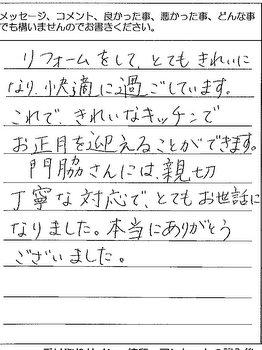 メッセージ、コメント、良かった事、悪かった事、どんな事
でも構いませんのでお書きください。
リフォームをして、とてもきれいに
なり、快適に過ごしています。
これで、きれいなキッチンで
お正月を迎えることができます。
門脇さんには、親切
丁寧な対応で、とてもお世話に
なりました。本当にありがとう
ございました。